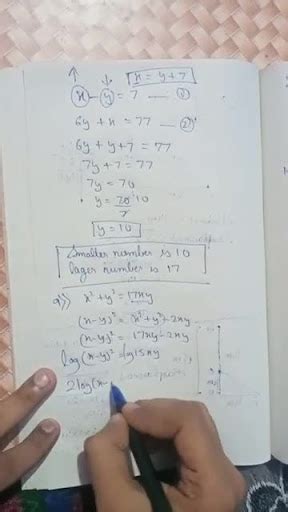 x = y + 7
x - y = 7 — ①
6y + x = 77 — ②
6y + y + 7 = 77
7y + 7 = 77
7y = 70
y = 70 10
7
y = 10
Smaller number is 10
lager number is 17
x² + y² = 17xy
(x-y)² = x² + y² - 2xy
(x-y)² = 17xy - 2xy
log (x-y)² = log 15xy
2log(x-